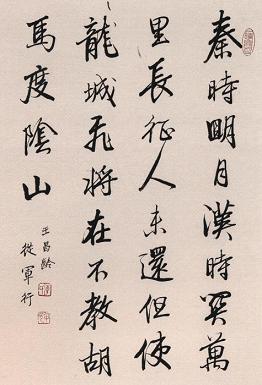 秦時明月漢時關萬
里長征人未還但使
龍城飛将在不教胡
馬度陰山
王昌齡
從軍行